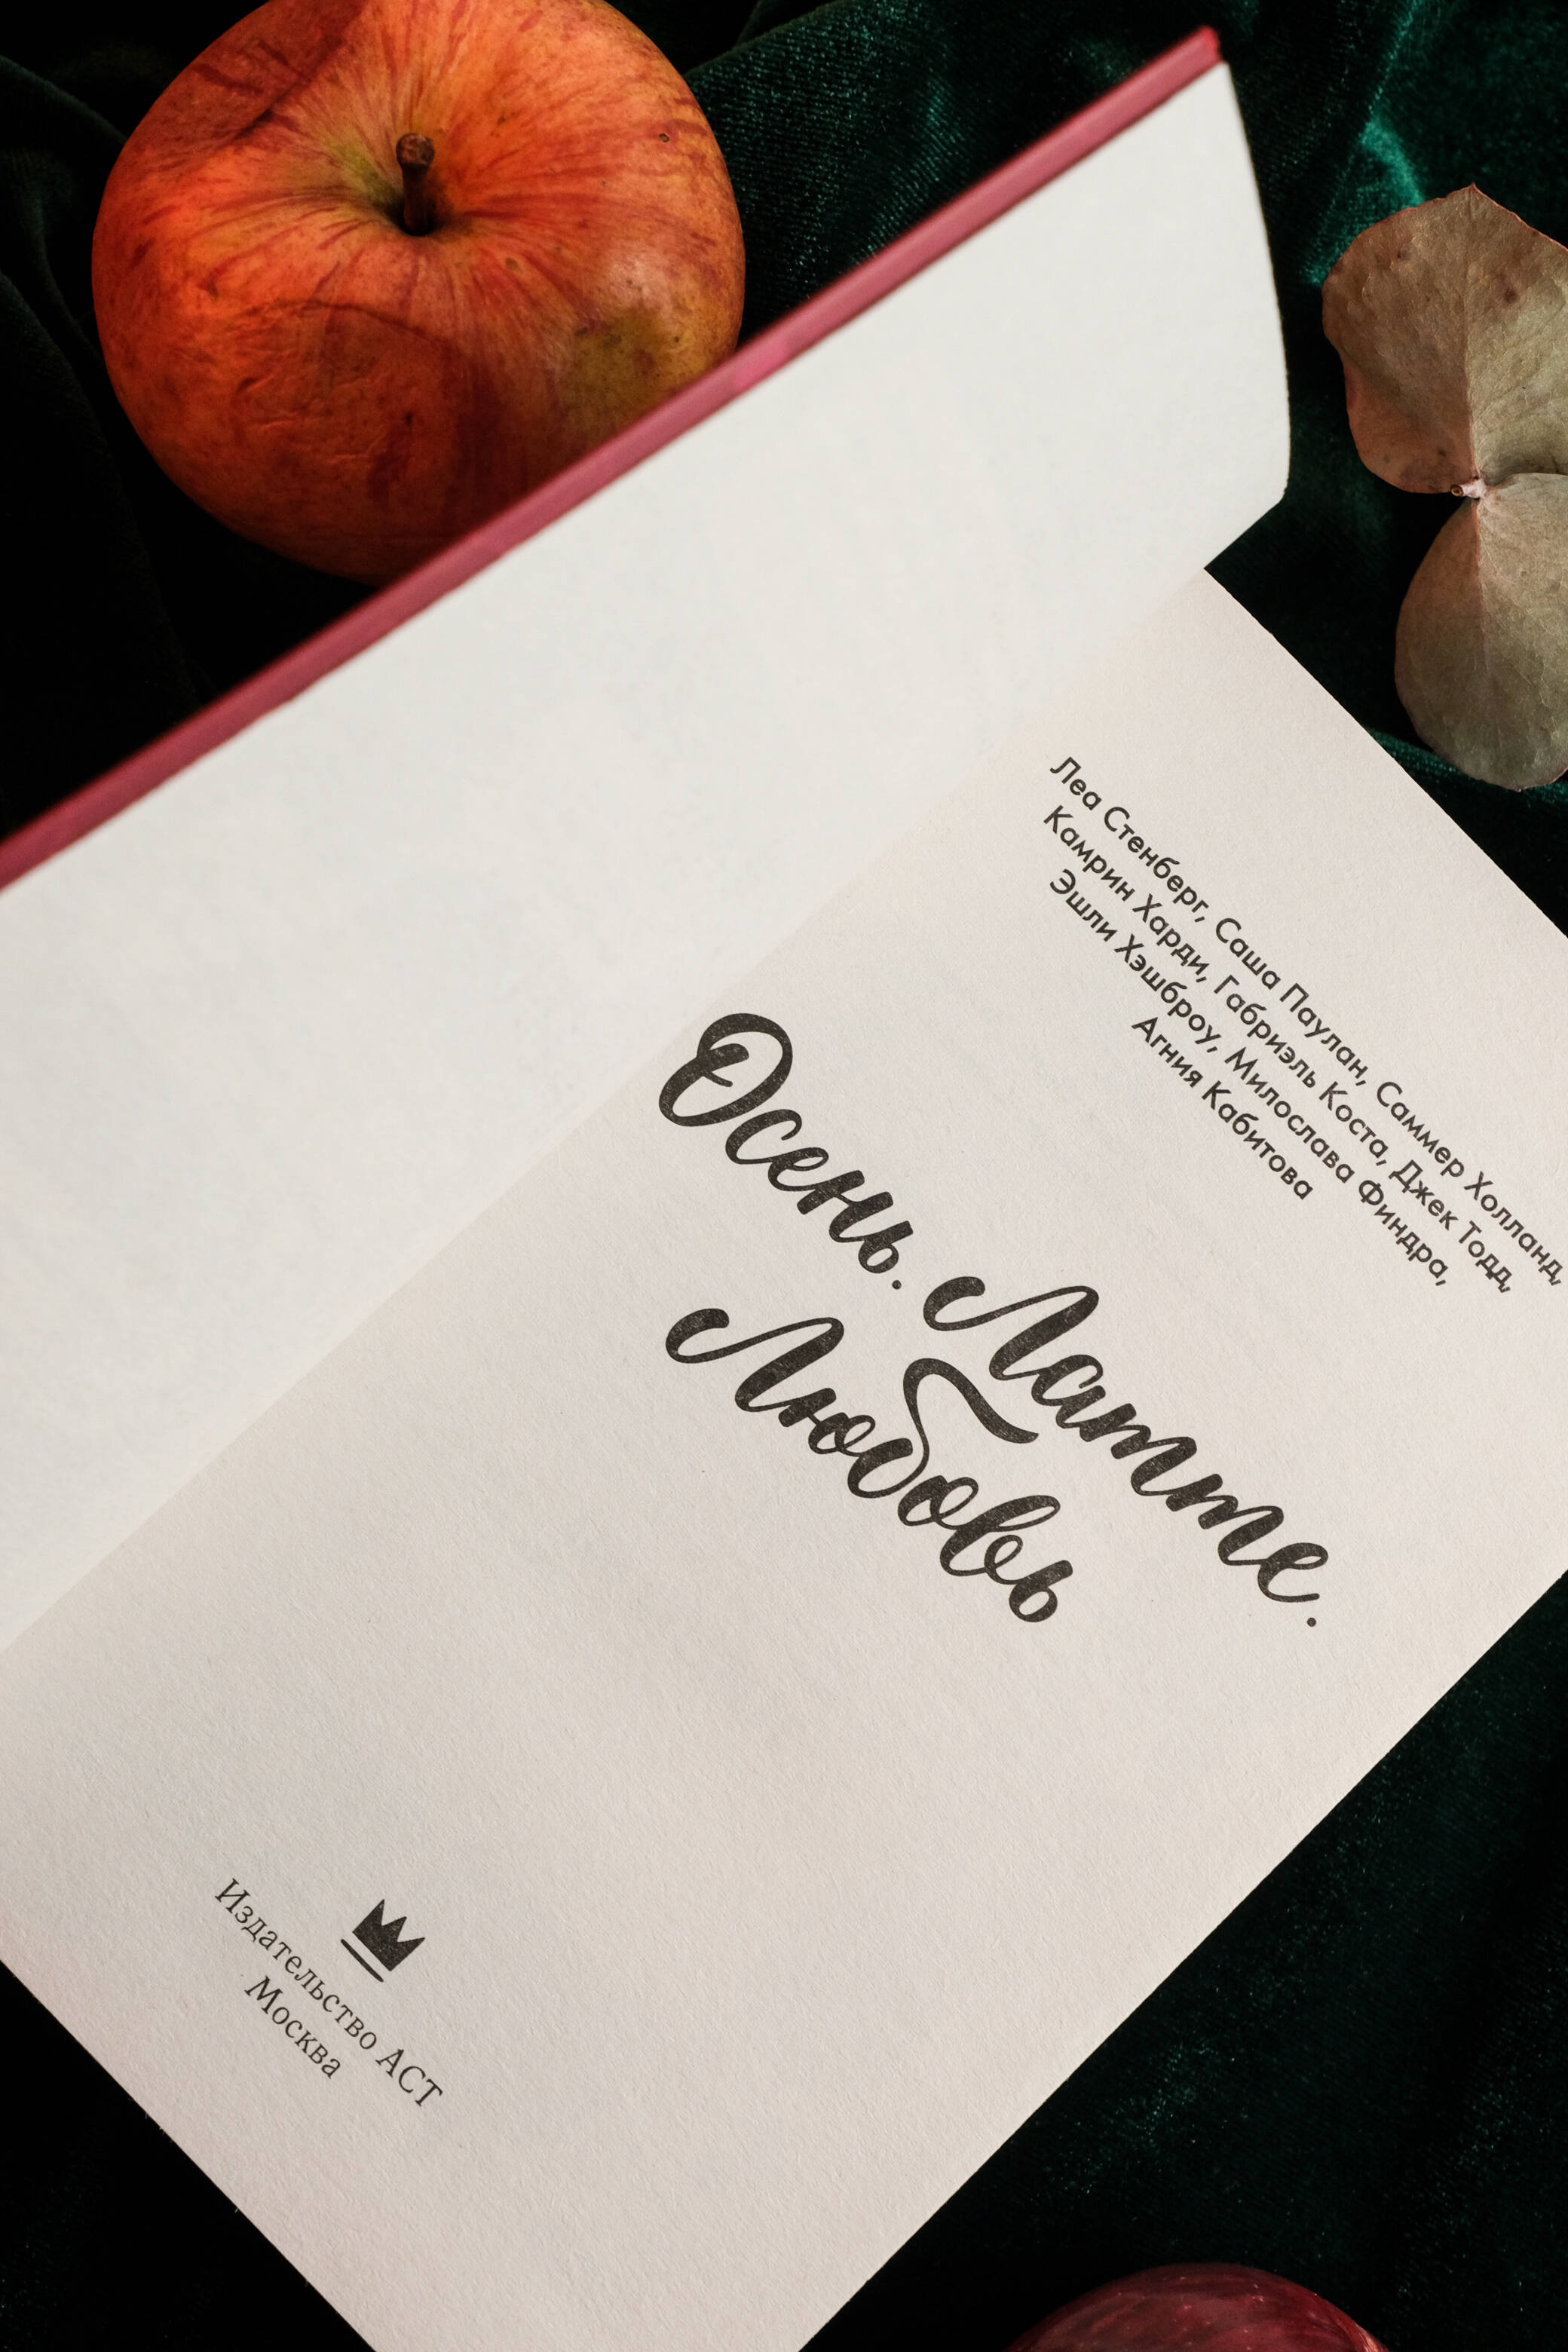 Леа Стенберг, Саша Паулан, Саммер Холланд,
Камрин Харди, Габриэль Коста, Джек Тодд,
Эшли Хэшброу, Милослава Финдра,
Агния Кабитова
Осень. Латте.
Любовь
Издательство АСТ
Москва